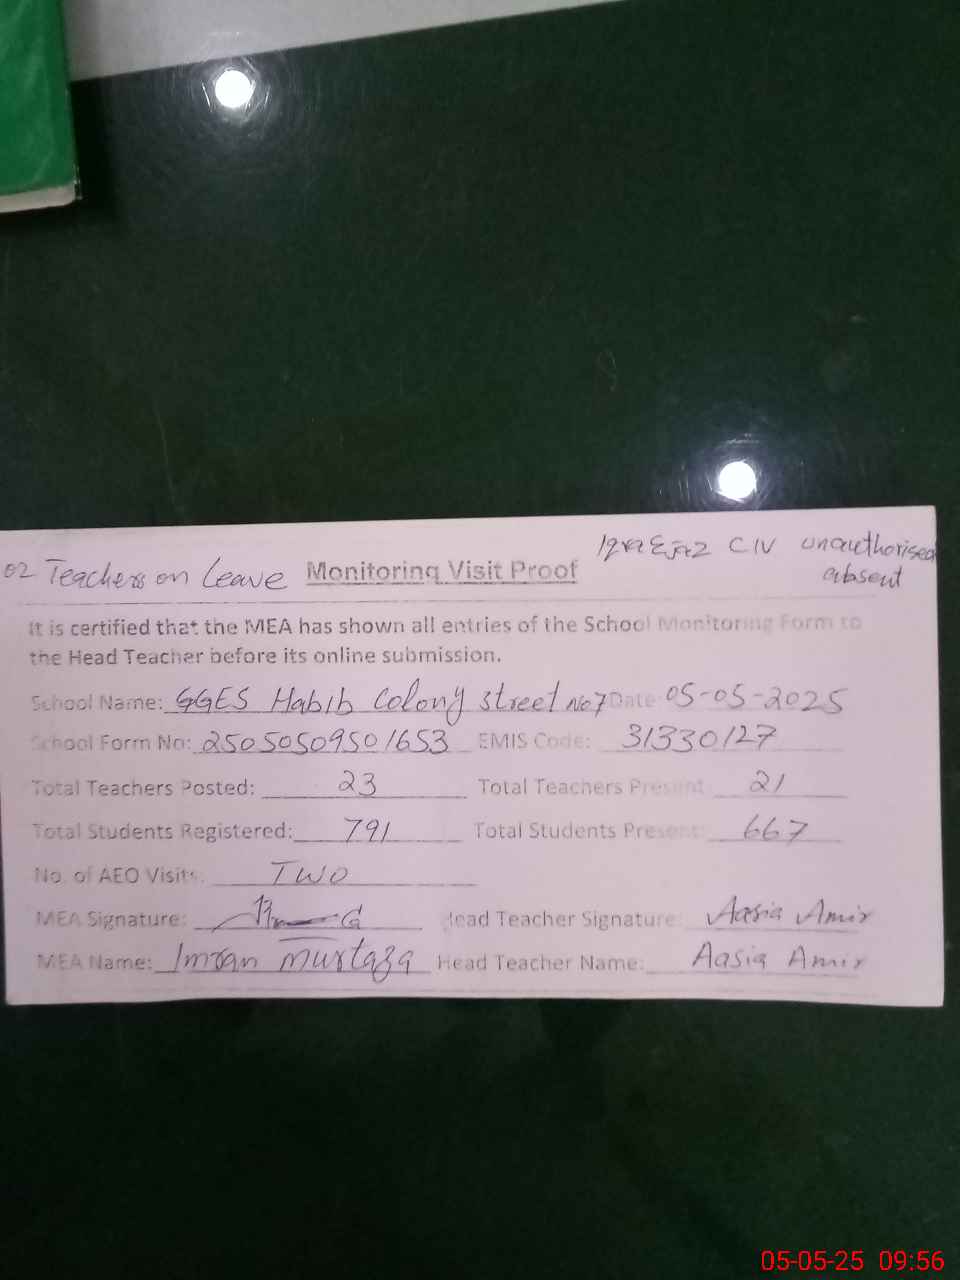 02 Teachers on Leave Monitoring Visit Proof Iqra Ejaz CIV unauthorised absent
It is certified that the MEA has shown all entries of the School Monitoring Form to
the Head Teacher before its online submission.
School Name: GGES Habib Colony street No7 Date 05-05-2025
School Form No: 25050509501653 EMIS Code: 31330127
Total Teachers Posted: 23 Total Teachers Present 21
Total Students Registered: 791 Total Students Present: 667
No. of AEO Visits: TWO
MEA Signature: Head Teacher Signature: Aasia Amir
MEA Name: Imran Murtaza Head Teacher Name: Aasia Amir
05-05-25 09:56